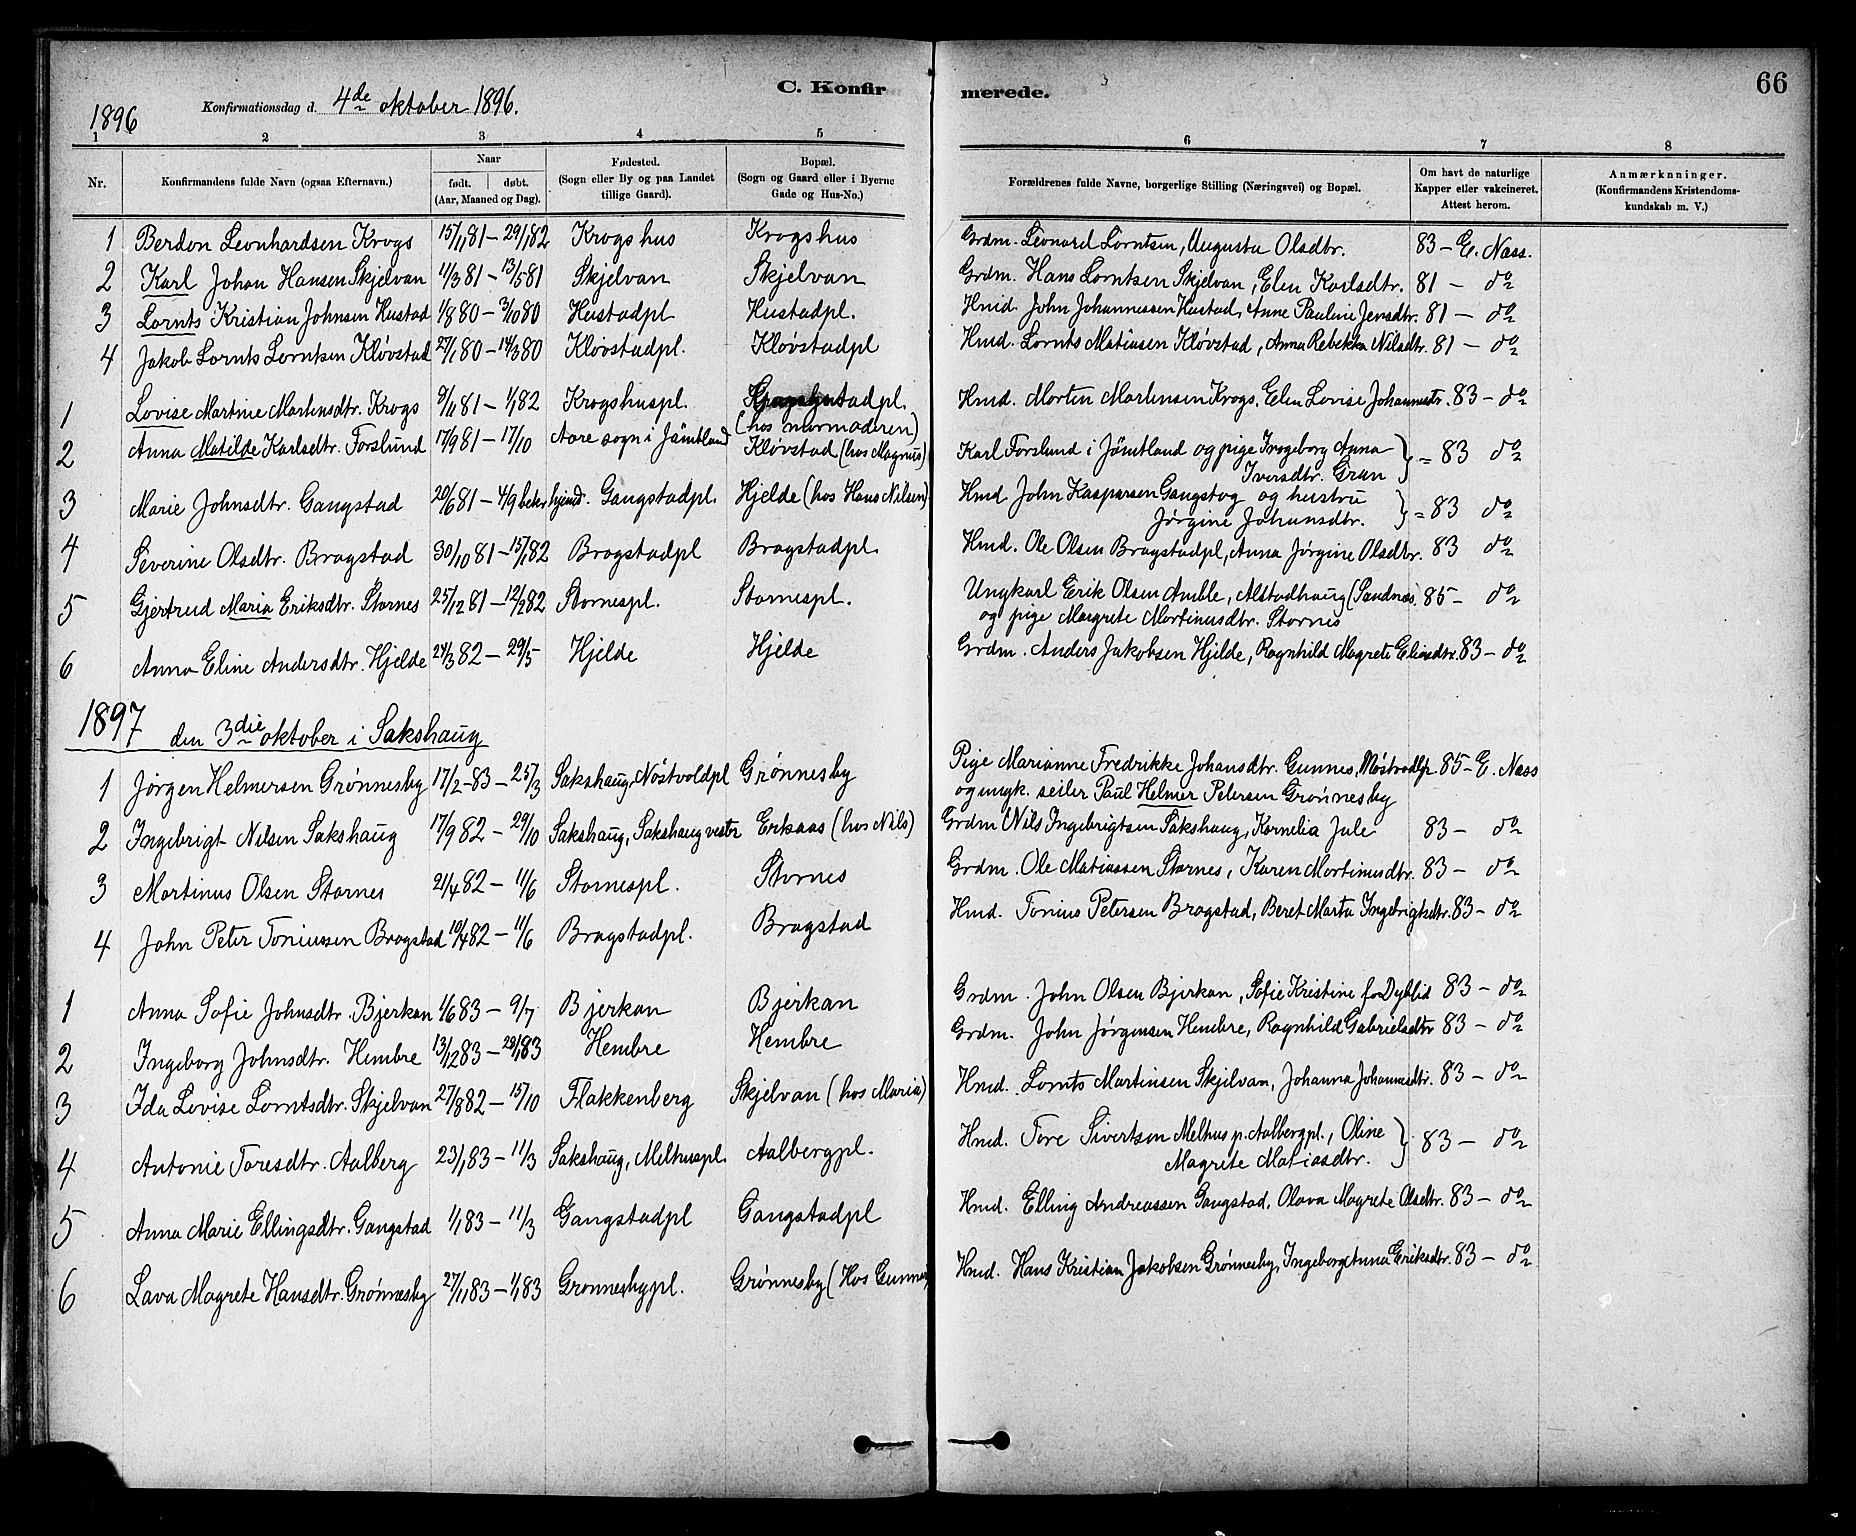 C. Konfirmerede. 66
1896 Konfirmationsdag d. 4de oktober 1896.
1 2 3 4 5 6 7 8
Nr. Konfirmandens fulde Navn (ogsaa Efternavn.) Naar født. døbt. (Aar, Maaned og Dag). Fødested. (Sogn eller By og paa Landet tillige Gaard). Bopæl. (Sogn og Gaard eller i Byerne Gade og Hus-No.) Forældrenes fulde Navne, borgerlige Stilling (Næringsvei) og Bopæl. Om havt de naturlige Kapper eller vakcineret. Attest herom. Anmærkninger. (Konfirmandens Kristendomskundskab m. V.)
1 Berdon Leonhardsen Krogs 15/1 81 – 29/1 82 Krogshus Krogshus Grdm. Leonard Lorntsen, Augusta Olsdtr. 83 – E. Næss.
2 Karl Johan Hansen Skjelvan 11/3 81 – 13/5 81 Skjelvan Skjelvan Grdm. Hans Lorntsen Skjelvan, Elen Karlsdtr. 81 – do
3 Lornts Kristian Johnsen Hustad 1/8 80 – 3/10 80 Hustadpl Hustadpl. Hmd. John Johannessen Hustad, Anne Pauline Jensdtr. 81 – do
4 Jakob Lornts Lorntsen Kløvstad 27/1 80 – 14/3 80 Kløvstadpl. Kløvstadpl Hmd. Lornts Matiusen Kløvstad, Anna Rebekka Nilsdtr. 81 – do
1 Lovise Martine Martensdtr. Krogs 9/11 81 – 1/1 82 Krogshuspl. (hos mormoderen) Hmd. Morten Martensen Krogs, Elen Lovise Johannesdtr. 83 – do
2 Anna Matilde Karlsdtr. Forslund 17/9 81 – 17/10 Aare sogn i Jämtland Kløvstad (hos Magnus) Karl Forslund i Jämtland og pige Ingeborg Anna Iversdtr. Gran } = 83 do
3 Marie Johnsdtr. Gangstad 20/6 81 – 4/9 bekr. hjemd. Gangstadpl. Hjelde (hos Hans Nilsen) Hmd. John Kaspersen Gangstog og hustru Jørgine Johansdtr. } = 83 do
4 Severine Olsdtr. Bragstad 30/10 81 – 15/1 82 Bragstadpl Bragstadpl. Hmd. Ole Olsen Bragstadpl, Anna Jørgine Olsdtr. 83 do
5 Gjertrud Maria Eriksdtr. Stornes 25/12 81 – 12/2 82 Stornespl. Stornespl. Ungkarl Erik Olsen Amble, Alstadhaug (Sandnæs) og pige Margrete Martinusdtr. Stornes 85 – do
6 Anna Eline Andersdtr. Hjelde 24/3 82 – 29/5 Hjelde Hjelde Grdm. Anders Jakobsen Hjelde, Ragnhild Magrete Eliasdtr. 83 – do
1897 den 3die oktober i Sakshaug
1 Jørgen Helmersen Grønnesby 17/2 – 83 – 25/3 Sakshaug, Nöstvoldpl Grønnesby Pige Marianne Fredrikke Johansdtr. Gunnes, Nöstvoldp. og ungk. seiler Paul Helmer Petersen Grønnesby 85 – E. Næss
2 Ingebrigt Nilsen Sakshaug 17/9 82 – 29/10 Sakshaug, Sakshaug vestr Erkaas (hos Nils) Grdm Nils Ingebrigtsen Sakshaug, Kornelia Jule 83 – do
3 Martinus Olsen Stornes 21/4 82 – 11/6 Stornespl. Stornes Grdm. Ole Matiassen Stornes, Karen Martinusdtr. 83 – do
4 John Peter Toniussen Bragstad 10/4 82 – 11/6 Bragstadpl. Bragstad Hmd. Tonius Petersen Bragstad, Beret Marta Ingebrigtsdtr. 83 – do
1 Anna Sofie Johnsdtr. Bjerkan 1/6 83 – 9/7 Bjerkan Bjerkan Grdm. John Olsen Bjerkan, Sofie Kristine f. Dyblid 83 – do
2 Ingeborg Johnsdtr. Hembre 13/12 83 – 28/1 83 Hembre Hembre Grdm. John Jørgensen Hembre, Ragnhild Gabrielsdtr 83 – do
3 Ida Lovise Lorntsdtr. Skjelvan 27/8 82 – 15/10 Flakkenberg Skjelvan (hos Maria) Hmd. Lornts Martinsen Skjelvan, Johanna Johannesdtr. 83 – do
4 Antonie Toresdtr. Aalberg 23/1 83 – 11/3 Sakshaug, Melhuspl. Aalbergpl. Hmd. Tore Sivertsen Melhus p. Aalbergpl., Oline Magrete Matiasdtr. } 83 – do
5 Anna Marie Ellingsdtr. Gangstad 1/1 83 – 11/3 Gangstadpl Gangstadpl Hmd. Elling Andreassen Gangstad, Olava Magrete Olsdtr. 83 – do
6 Lava Magrete Hansdtr. Grønnesby 27/11 83 – 1/1 83 Grønnesbypl. Grønnesby (hos Gunnes) Hmd. Hans Kristian Jakobsen Grønnesby, Ingeborg Anna Eriksdtr. 83 – do